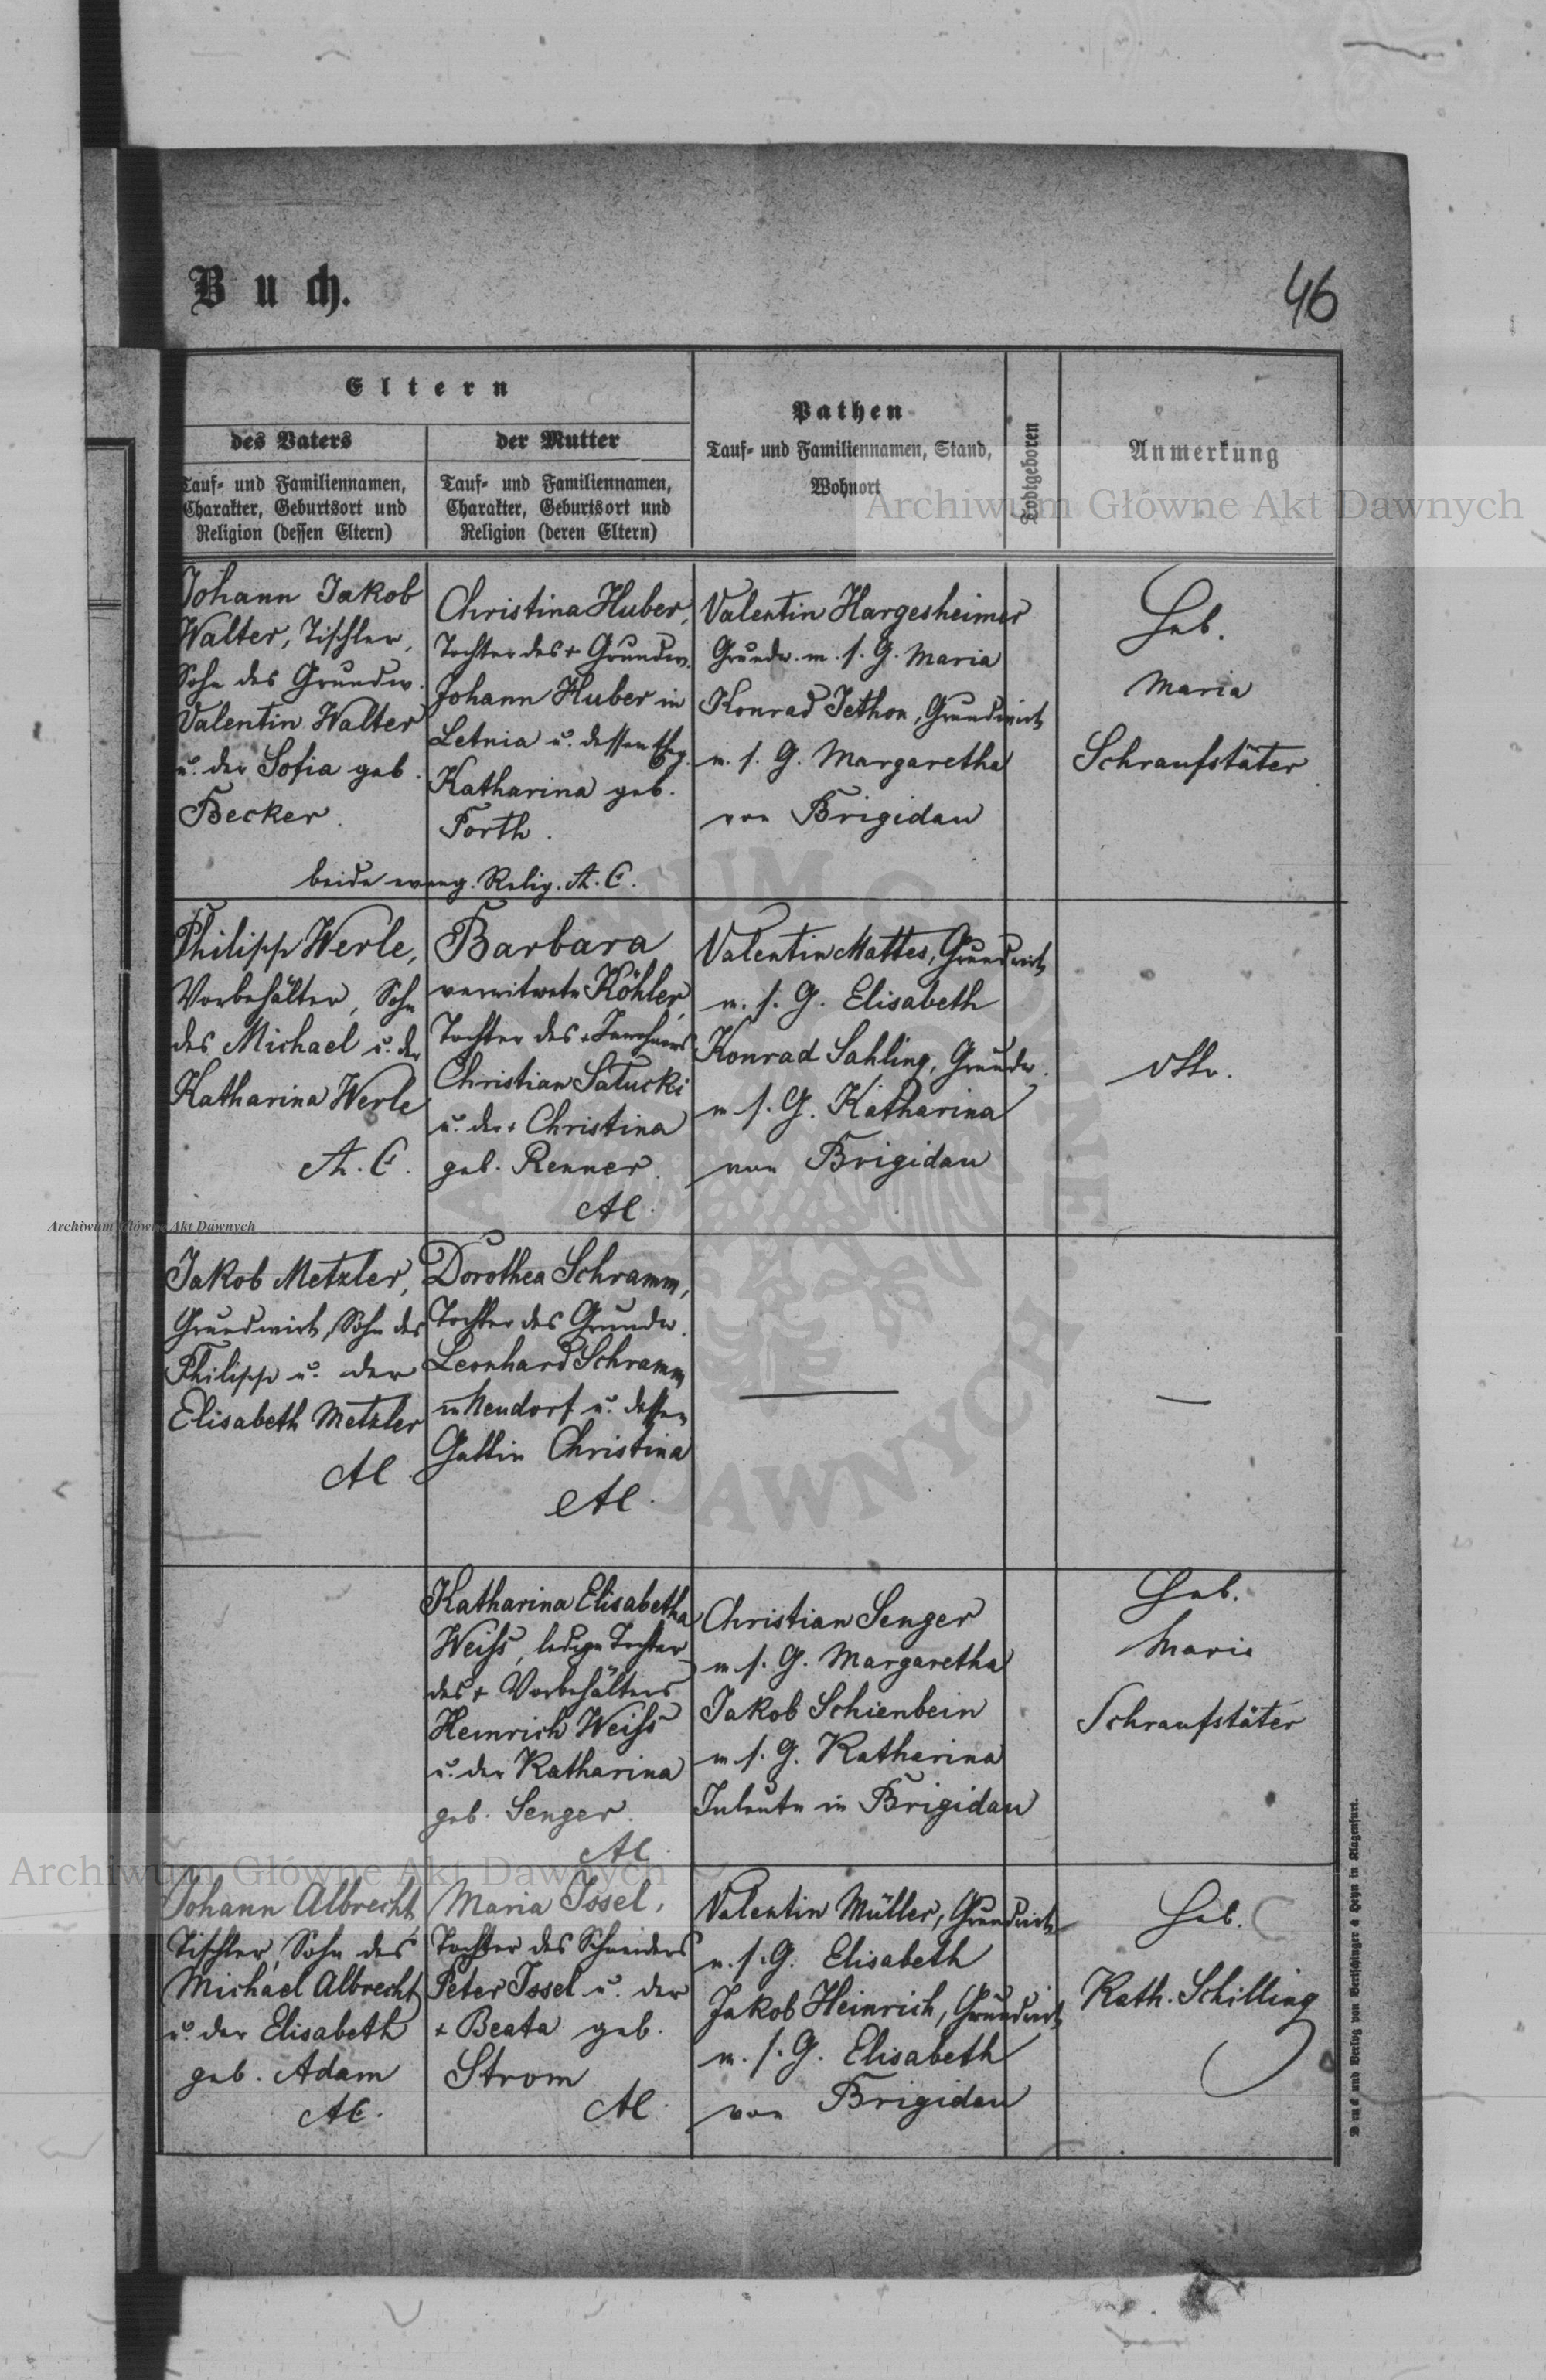 Buch.
46
Eltern
des Vaters
Tauf- und Familiennamen,
Charakter, Geburtsort und
Religion (dessen Eltern)
der Mutter
Tauf- und Familiennamen,
Charakter, Geburtsort und
Religion (deren Eltern)
Pathen
Tauf- und Familiennamen, Stand,
Wohnort
Todtgeboren
Anmerkung
Johann Jakob
Walter, Tischler,
Sohn des Grundw.
Valentin Walter
u. der Sofia geb.
Becker.
Christina Huber,
Tochter des + Grundw.
Johann Huber in
Letnia u. dessen Eheg.
Katharina geb.
Forth.
beide evang. Relig. A. C.
Valentin Hargesheimer
Grundw. m. s. G. Maria
Konrad Jethon, Grundwirth
m. s. G. Margaretha
von Brigidau
Heb.
Maria
Schraufstäter
Philipp Werle,
Vorbehälter, Sohn
des Michael u. der
Katharina Werle
A. C.
Barbara
verwitwete Köhler,
Tochter des + Inwohners
Christian Satucki
u. der + Christina
geb. Renner.
AC.
Valentin Mattes, Grundwirth
m. s. G. Elisabeth
Konrad Sahling, Grundw.
m s. G. Katharina
von Brigidau
Jakob Metzler,
Grundwirth, Sohn des
Philipp u. der
Elisabeth Metzler
AC
Dorothea Schramm,
Tochter des Grundw.
Leonhard Schramm
in Neudorf u. dessen
Gattin Christina
AC.
Katharina Elisabetha
Weiss, ledige Tochter
des + Vorbehälters
Heinrich Weiss
u. der Katharina
geb. Senger.
AC.
Christian Senger
m s. G. Margaretha
Jakob Schienbein
m s. G. Katharina
Inleute in Brigidau
Heb.
Maria
Schraufstäter
Johann Albrecht,
Tischler, Sohn des
Michael Albrecht
u. der Elisabeth
geb. Adam
AC.
Maria Issel,
Tochter des Schneiders
Peter Issel u. der
+ Beata geb.
Strom
AC.
Valentin Müller, Grundwirth
m. s. G. Elisabeth
Jakob Heinrich, Grundwirth
m. s. G. Elisabeth
von Brigidau
Heb.
Kath. Schilling
Druck und Verlag von Bertschinger & Heyn in Klagenfurt.
Archiwum Główne Akt Dawnych
Archiwum Główne Akt Dawnych
Archiwum Główne Akt Dawnych